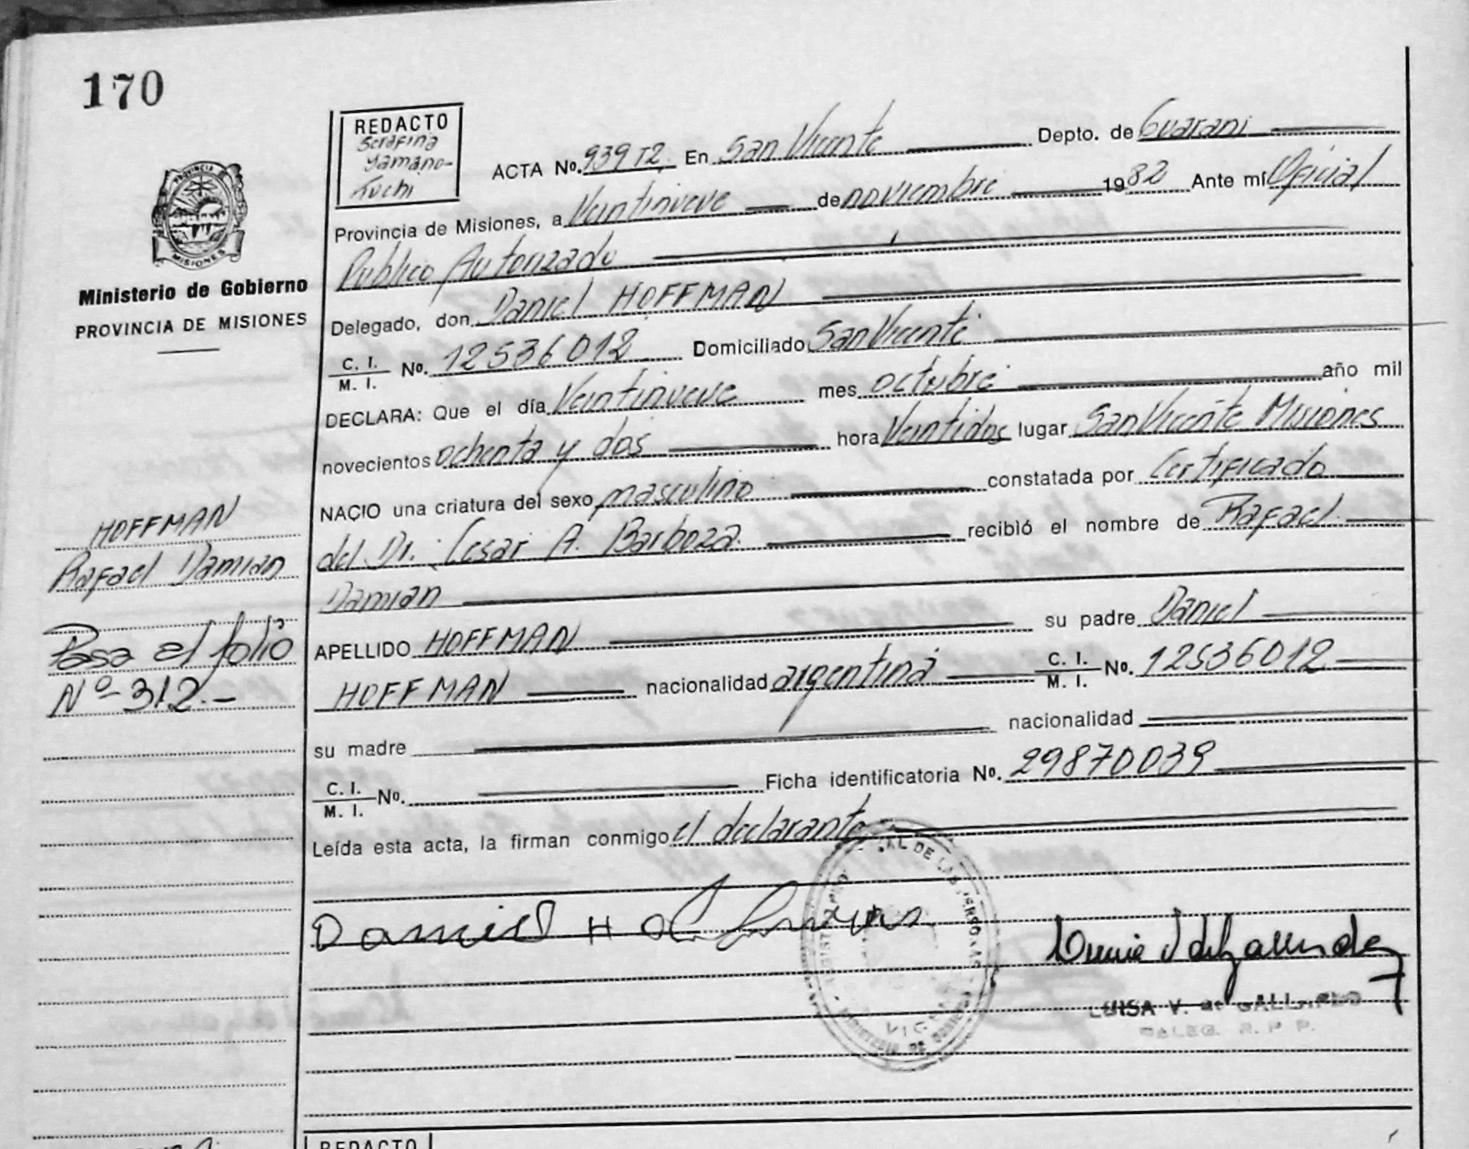 170
REDACTO
Serafina
Yamano-
Kuchi
ACTA No. 939 T2. En San Vicente Depto. de Guarani
Provincia de Misiones, a Veintinueve de noviembre 1982 Ante mí Oficial
Publico Autorizado
Delegado, don Daniel HOFFMAN
C. I.
M. I. No. 12536012 Domiciliado San Vicente
DECLARA: Que el día Veintinueve mes octubre año mil
novecientos ochenta y dos hora Veintidos lugar San Vicente Misiones
NACIO una criatura del sexo masculino constatada por Certificado
del Dr. Cesar A. Barboza recibió el nombre de Rafael
Damian
APELLIDO HOFFMAN su padre Daniel
HOFFMAN nacionalidad argentina C. I.
M. I. No. 12536012
su madre nacionalidad
C. I.
M. I. No. Ficha identificatoria No. 29870039
Leída esta acta, la firman conmigo el declarante
LUISA V. de GALLARDO
DALEG. R. P. P.
PROVINCIA DE
MISIONES
Ministerio de Gobierno
PROVINCIA DE MISIONES
HOFFMAN
Rafael Damian
Pasa al folio
Nº 312.-
REDACTO